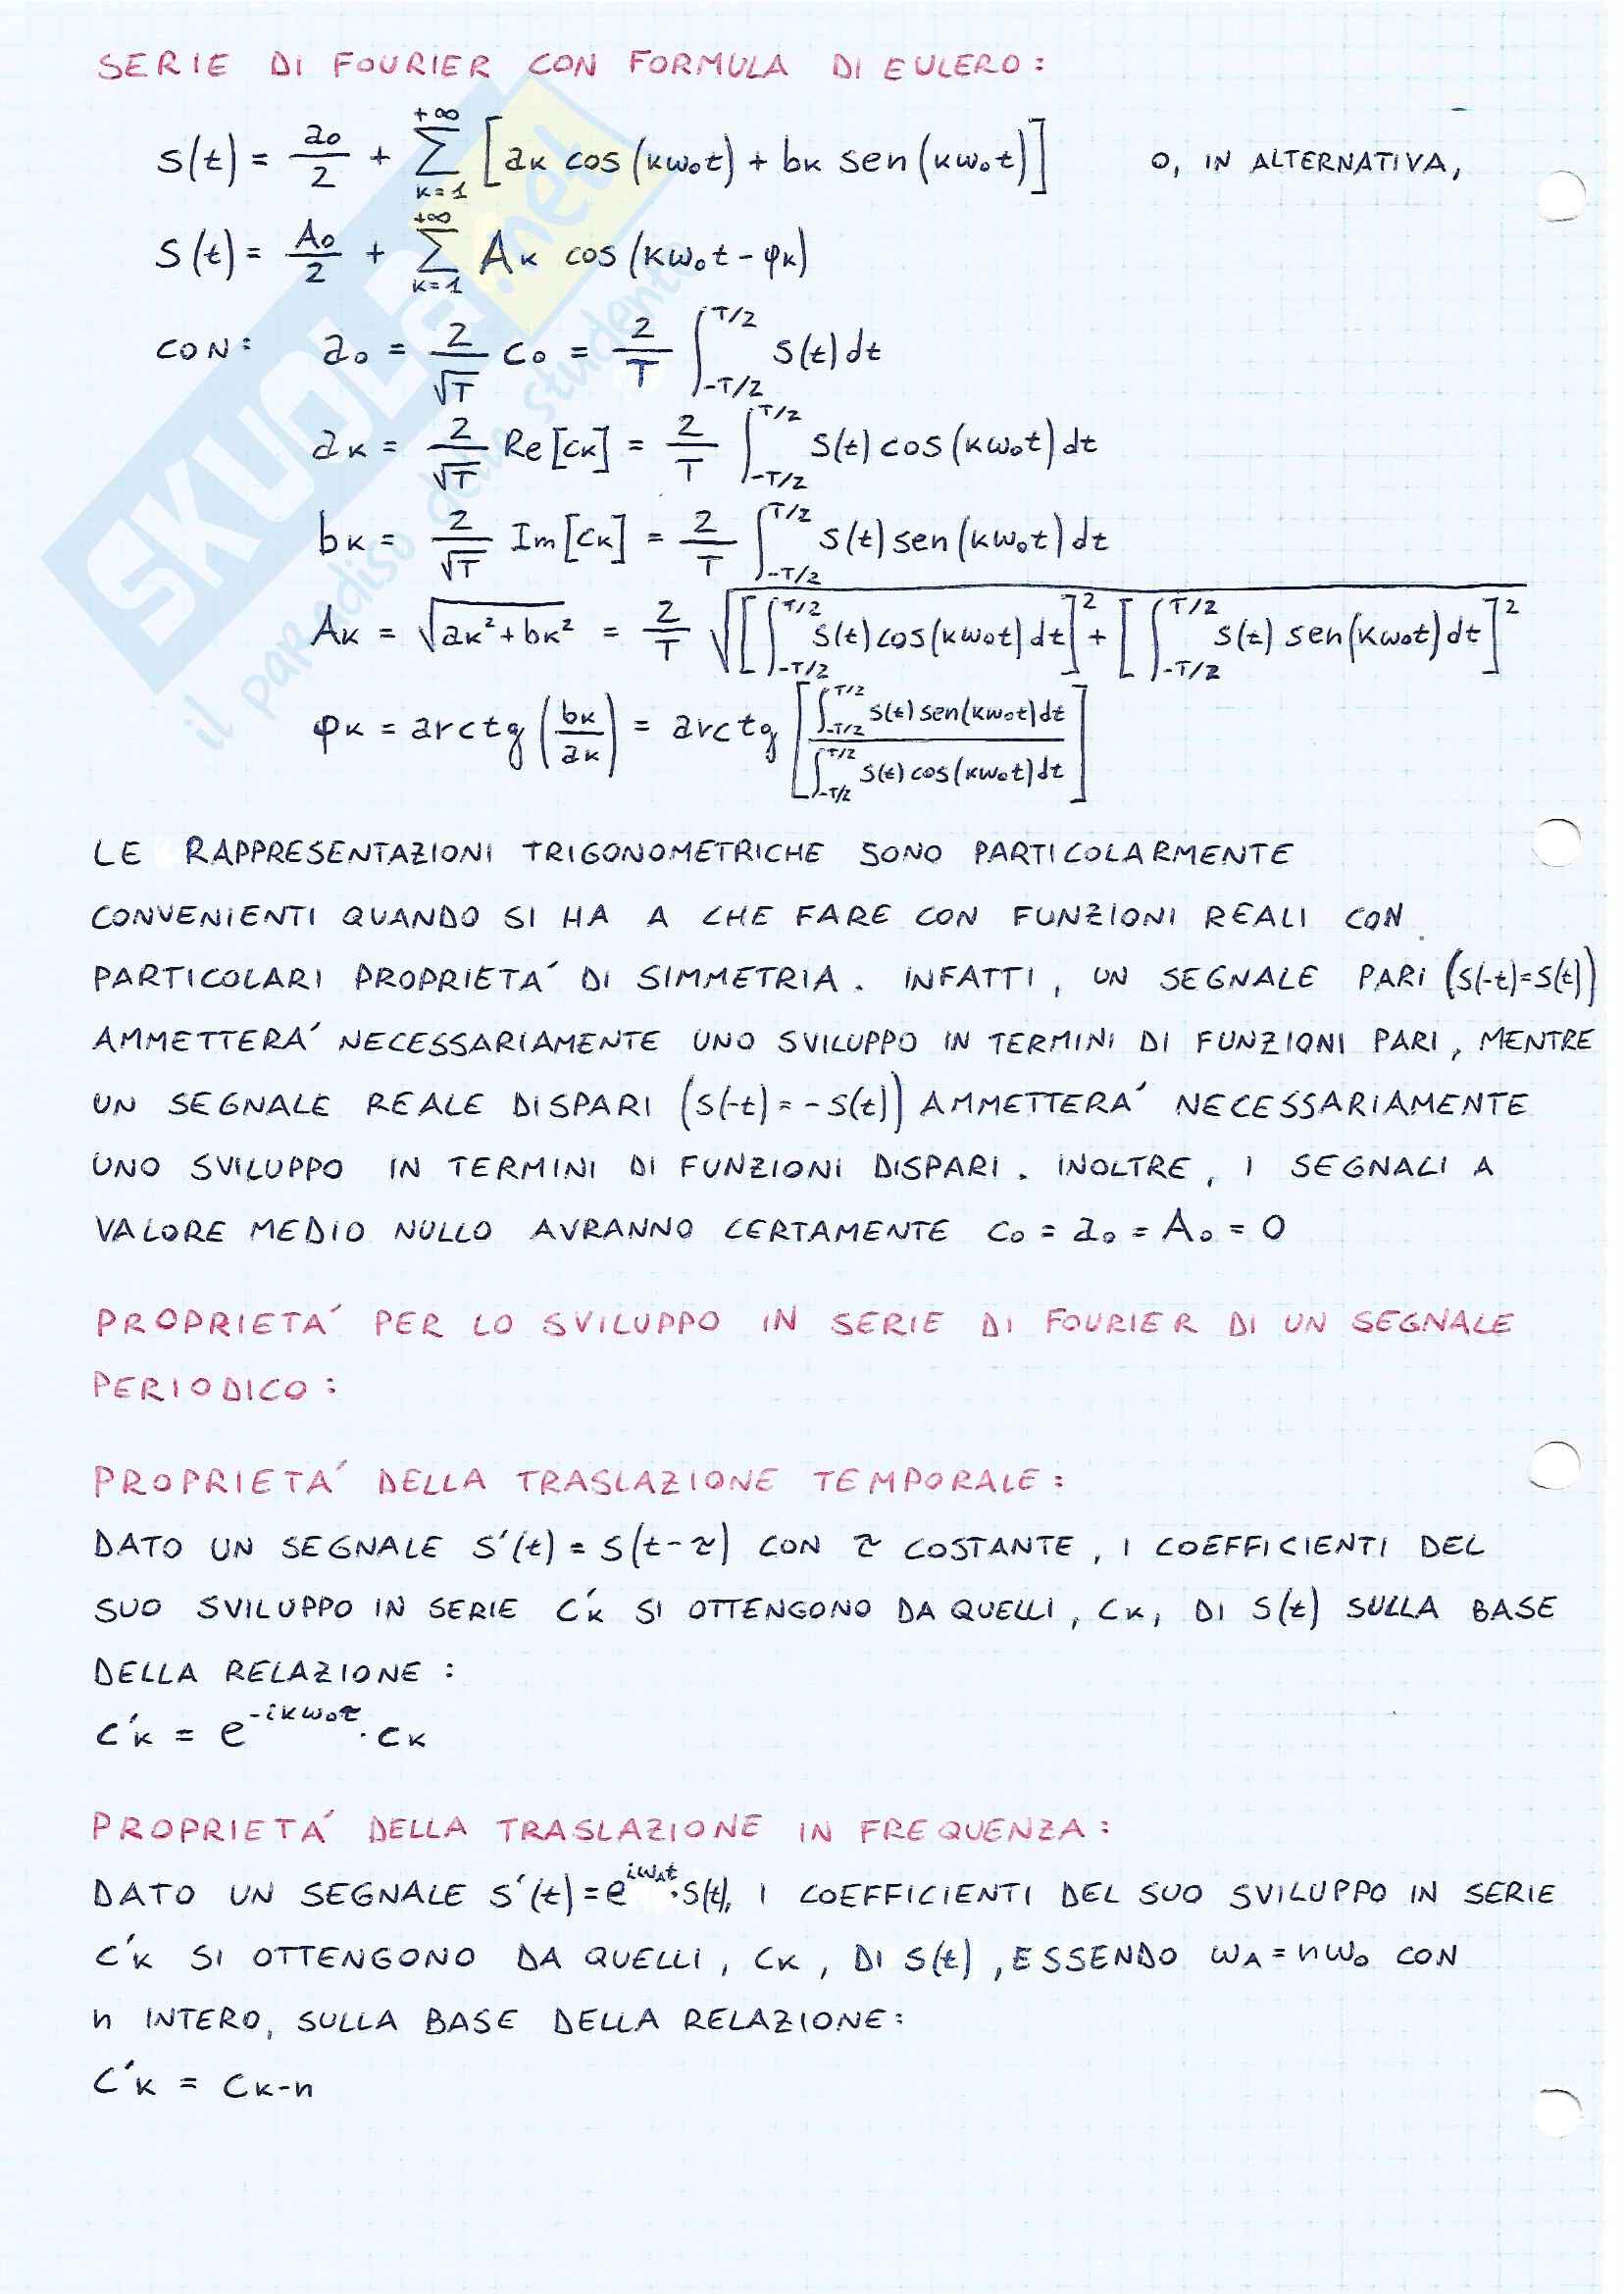 SERIE DI FOURIER CON FORMULA DI EULERO:
s(t) = a₀/2 + Σ_{k=1}^{+∞} [aₖ cos(kω₀t) + bₖ sen(kω₀t)]   O, IN ALTERNATIVA,
s(t) = A₀/2 + Σ_{k=1}^{+∞} Aₖ cos(kω₀t - φₖ)
CON: a₀ = 2/√T c₀ = 2/T ∫_{-T/2}^{T/2} s(t) dt
aₖ = 2/√T Re[cₖ] = 2/T ∫_{-T/2}^{T/2} s(t) cos(kω₀t) dt
bₖ = 2/√T Im[cₖ] = 2/T ∫_{-T/2}^{T/2} s(t) sen(kω₀t) dt
Aₖ = √(aₖ² + bₖ²) = 2/T √([∫_{-T/2}^{T/2} s(t) cos(kω₀t) dt]² + [∫_{-T/2}^{T/2} s(t) sen(kω₀t) dt]²)
φₖ = arctg(bₖ/aₖ) = arctg[∫_{-T/2}^{T/2} s(t) sen(kω₀t) dt / ∫_{-T/2}^{T/2} s(t) cos(kω₀t) dt]
LE RAPPRESENTAZIONI TRIGONOMETRICHE SONO PARTICOLARMENTE
CONVENIENTI QUANDO SI HA A CHE FARE CON FUNZIONI REALI CON
PARTICOLARI PROPRIETA' DI SIMMETRIA. INFATTI, UN SEGNALE PARI (s(-t)=s(t))
AMMETTERA' NECESSARIAMENTE UNO SVILUPPO IN TERMINI DI FUNZIONI PARI, MENTRE
UN SEGNALE REALE DISPARI (s(-t) = -s(t)) AMMETTERA' NECESSARIAMENTE
UNO SVILUPPO IN TERMINI DI FUNZIONI DISPARI. INOLTRE, I SEGNALI A
VALORE MEDIO NULLO AVRANNO CERTAMENTE c₀ = a₀ = A₀ = 0
PROPRIETA' PER LO SVILUPPO IN SERIE DI FOURIER DI UN SEGNALE
PERIODICO:
PROPRIETA' DELLA TRASLAZIONE TEMPORALE:
DATO UN SEGNALE s'(t) = s(t-τ) CON τ COSTANTE, I COEFFICIENTI DEL
SUO SVILUPPO IN SERIE c'ₖ SI OTTENGONO DA QUELLI, cₖ, DI s(t) SULLA BASE
DELLA RELAZIONE:
c'ₖ = e^{-ikω₀τ} · cₖ
PROPRIETA' DELLA TRASLAZIONE IN FREQUENZA:
DATO UN SEGNALE s'(t) = e^{iω_A t} · s(t), I COEFFICIENTI DEL SUO SVILUPPO IN SERIE
c'ₖ SI OTTENGONO DA QUELLI, cₖ, DI s(t), ESSENDO ω_A = nω₀ CON
n INTERO, SULLA BASE DELLA RELAZIONE:
c'ₖ = cₖ₋ₙ
SKUOLA.net
il paradiso dello studente